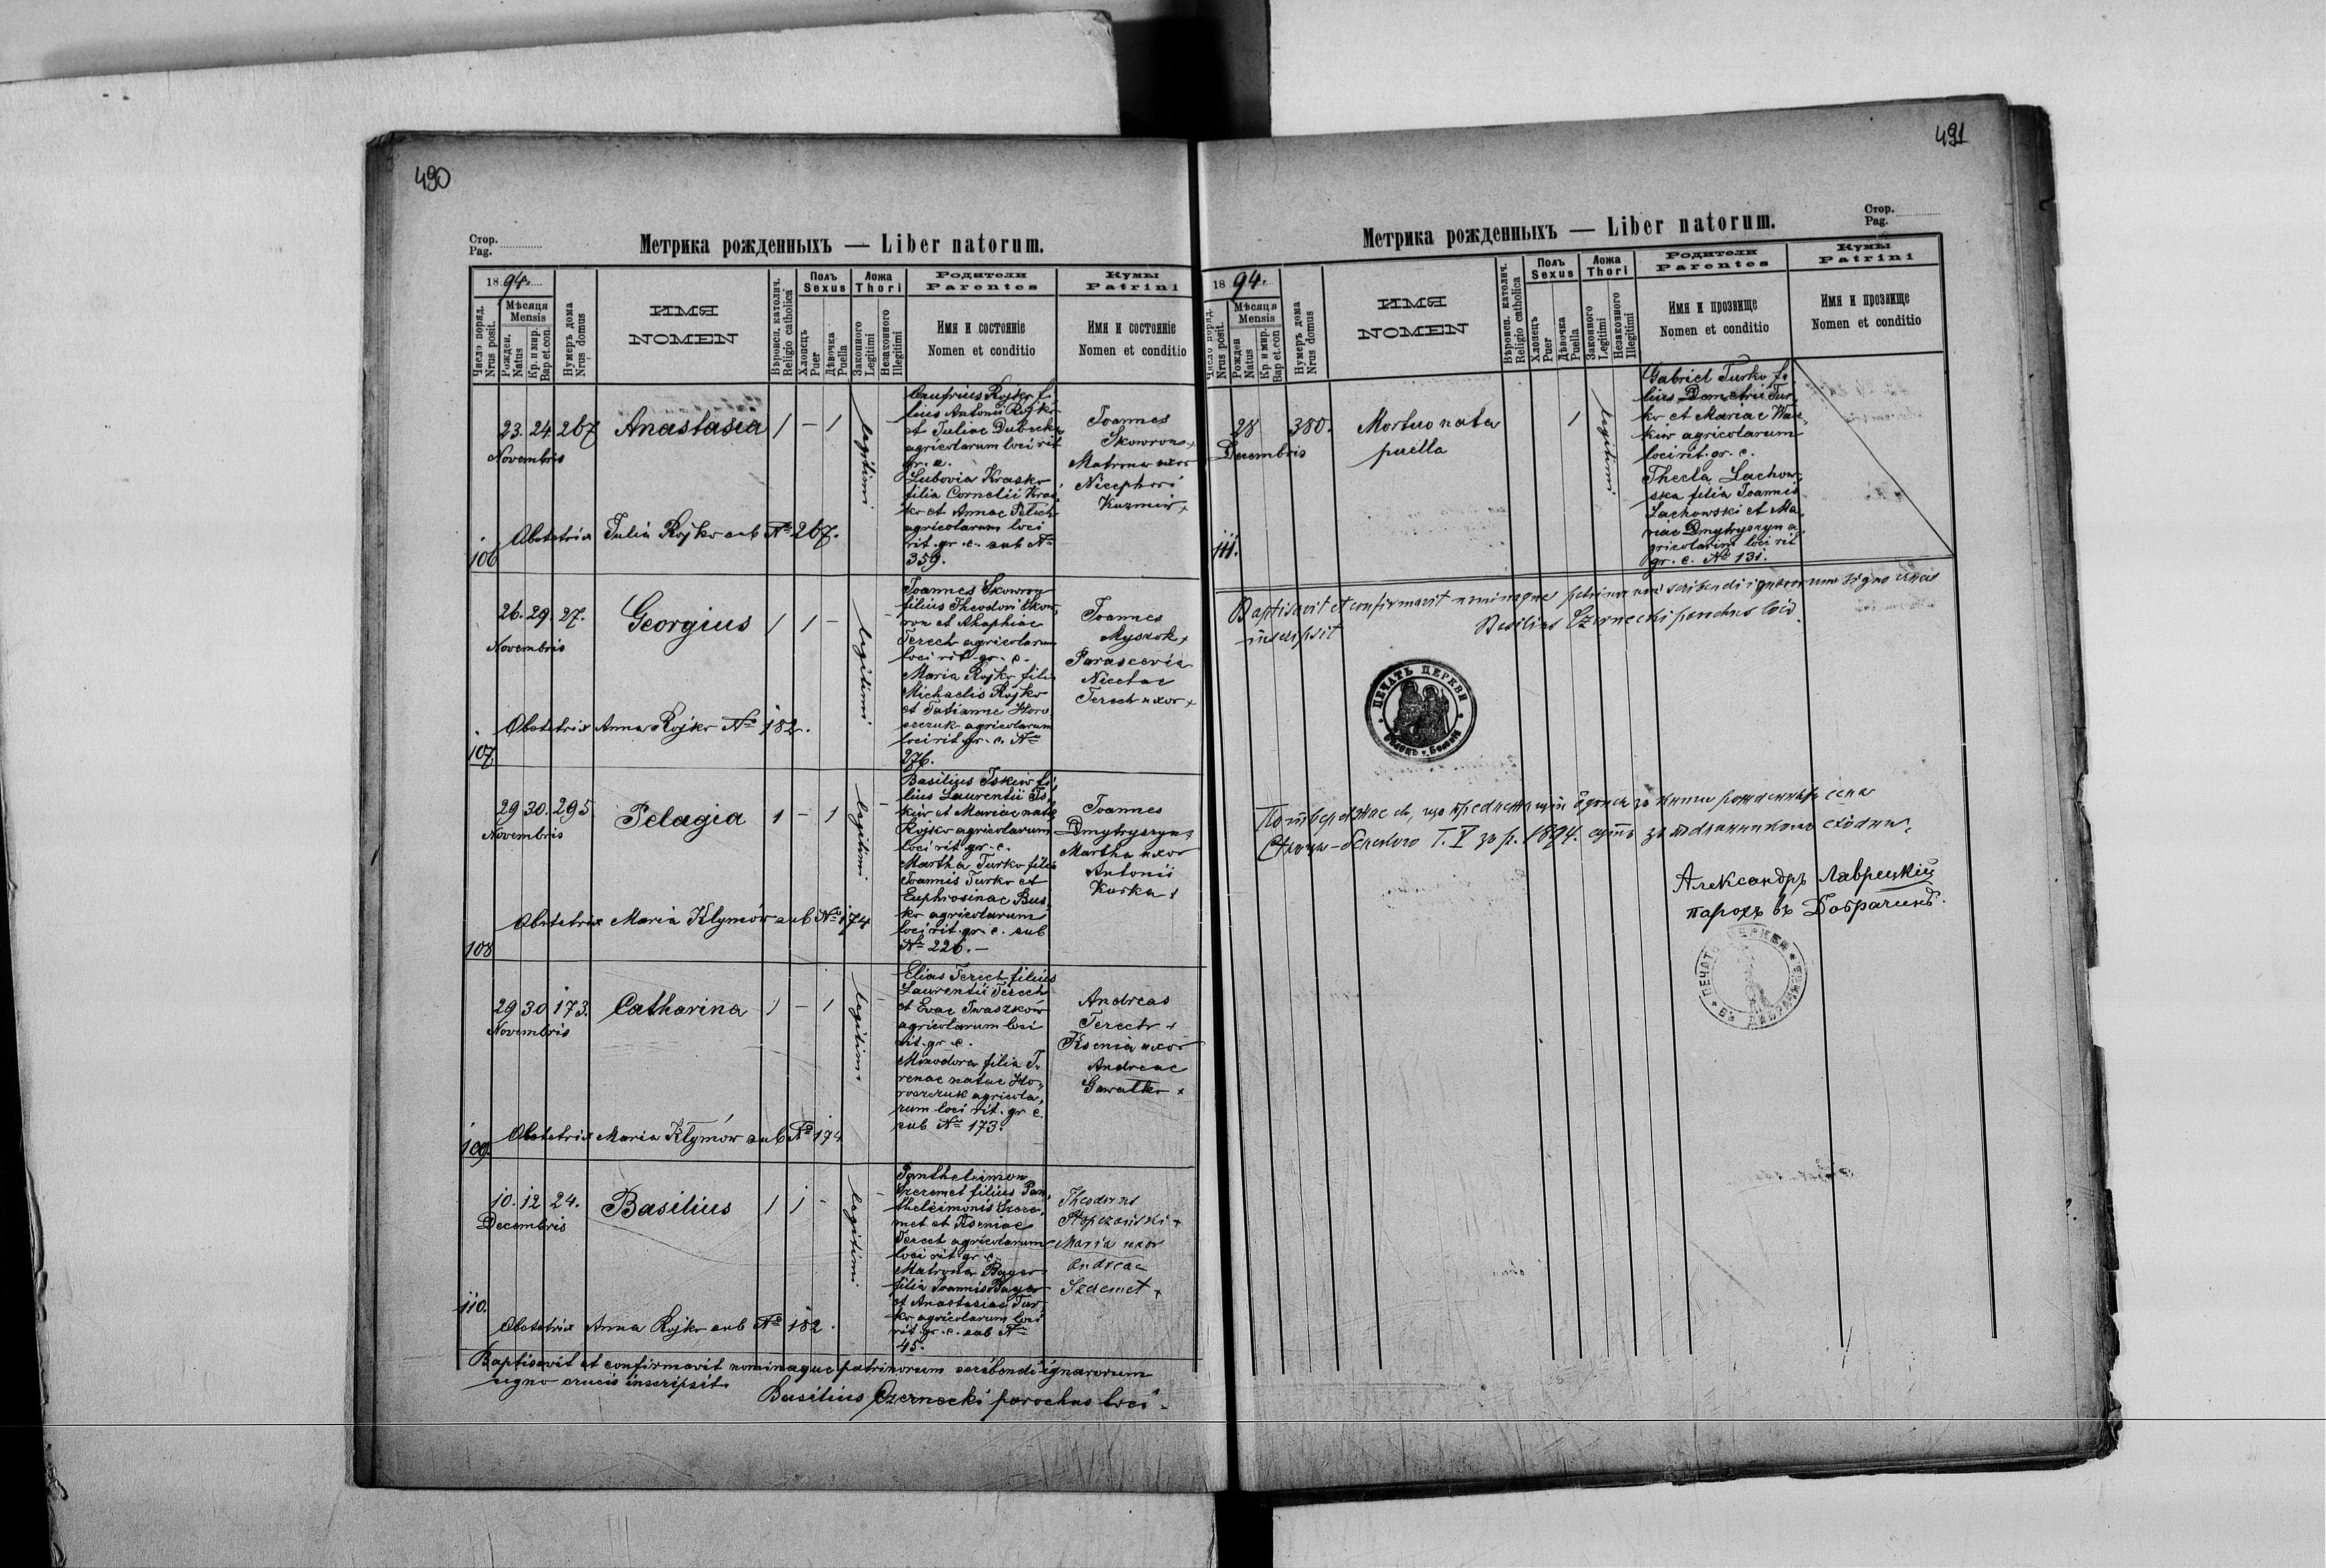 490
Стор.
Pag.
Метрика рожденныхъ — Liber natorum.
1894.
Число поряд.
Nrus posit.
Мѣсяця
Mensis
Рожден.
Natus
Кр. и мир.
Bap. et. con.
Нумеръ дома
Nrus domus
ИМЯ
NOMEN
Вѣроисп. католич.
Religio catholica
Полъ
Sexus
Хлопецъ
Puer
Дѣвочка
Puella
Ложа
Thori
Законного
Legitimi
Незаконного
Illegitimi
Родители
Parentes
Имя и состояніе
Nomen et conditio
Кумы
Patrini
Имя и состояніе
Nomen et conditio
106
23. 24. 267 Anastasia 1 – 1 legitimi
Novembris
Onufrius Rojko fi-
lius Antonii Rojko
et Juliae Dubecka
agricolarum loci rit.
gr. c.
Lubovia Krasko
filia Cornelii Kras-
ko et Annae Terech
agricolarum loci
rit. gr. c. sub No
359.
Joannes
Skoworon +
Matrona uxor
Nicephori
Kuzmiw +
Obstetrix Julia Rojko sub No 267.
107
26. 29. 27. Georgius 1 1 – legitimi
Novembris
Joannes Skoworon
filius Theodori Skow-
ron et Ahaphiae
Terech agricolarum
loci rit. gr. c.
Maria Rojko filia
Michaelis Rojko
et Tatianne Horo
szczuk agricolarum
loci rit. gr. c. No
276.
Joannes
Myszok +
Parascevia
Nicetae
Terech uxor +
Obstetrix Anna Rojko No 182.
108
29 30. 295 Pelagia 1 – 1 legitimi
Novembris
Basilius Iskiw fi-
lius Laurentii Is-
kiw et Mariae natae
Rojko agricolarum
loci rit. gr. c.
Martha Turko filia
Joannis Turko et
Euphrosinae Bus-
ko agricolarum
loci rit. gr. c. sub
No 226. –
Joannes
Dmytryszyn +
Martha uxor
Antonii
Kurka +
Obstetrix Maria Klymów sub No 174
109.
29 30 173. Catharina 1 – 1 legitimi
Novembris
Elias Terech filius
Laurentii Terech
et Evae Iwaszków
agricolarum loci
rit. gr. c.
Minodora filia I-
renae natae Ho-
roszczuk agricola-
rum loci rit. gr. c.
sub No 173.
Andreas
Terech +
Ksenia uxor
Andreae
Gawalko +
Obstetrix Maria Klymów sub No 174
110.
10. 12 24. Basilius 1 1 – legitimi
Decembris
Pantheleimon
Szeremet filius Pan-
theleimonis Szere-
met et Kseniae
Terech agricolarum
loci rit. gr. c.
Matrona Bayer
filia Joannis Bayer
et Anastasiae Tur-
ko agricolarum loci
rit. gr. c. sub No
45.
Theodorus
Maria uxor
Andreae
Szeremet +
Obstetrix Anna Rojko sub No 182.
Baptisavit et confirmavit nominaque patrinorum scribendi ignarorum
signo crucis inscripsit.
Basilius Czernecki parochus loci.
491
Стор.
Pag.
Метрика рожденныхъ — Liber natorum.
1894.
Число поряд.
Nrus posit.
Мѣсяця
Mensis
Рожден
Natus
Кр. и мир.
Bap et. con
Нумеръ дома
Nrus domus
ИМЯ
NOMEN
Вѣроисп. католич.
Religio catholica
Полъ
Sexus
Хлопецъ
Puer
Дѣвочка
Puella
Ложа
Thori
Законного
Legitimi
Незаконного
Illegitimi
Родители
Parentes
Имя и прозвище
Nomen et conditio
Кумы
Patrini
Имя и прозвище
Nomen et conditio
111.
28 380. Mortuo nata 1 legitimi
Decembris puella
Gabriel Turko fi-
lius Demetrii Tur-
ko et Mariae Was-
kiw agricolarum
loci rit. gr. c.
Thecla Lachow-
ska filia Joannis
Lachowski et Ma-
riae Dmytryszyn a-
gricolarum loci rit
gr. c. No 131.
Baptisavit et confirmavit nominaque patrinorum scribendi ignarorum signo crucis
inscripsit Basilius Czernecki parochus loci.
ПЕЧАТЬ ЦЕРКВИ
що предлежащіи
рожденныхъ села
T. V за р. 1894. суть
Александръ Лаврецкій
парохъ въ Добрачинѣ.
ПЕЧАТЬ ЦЕРКВИ